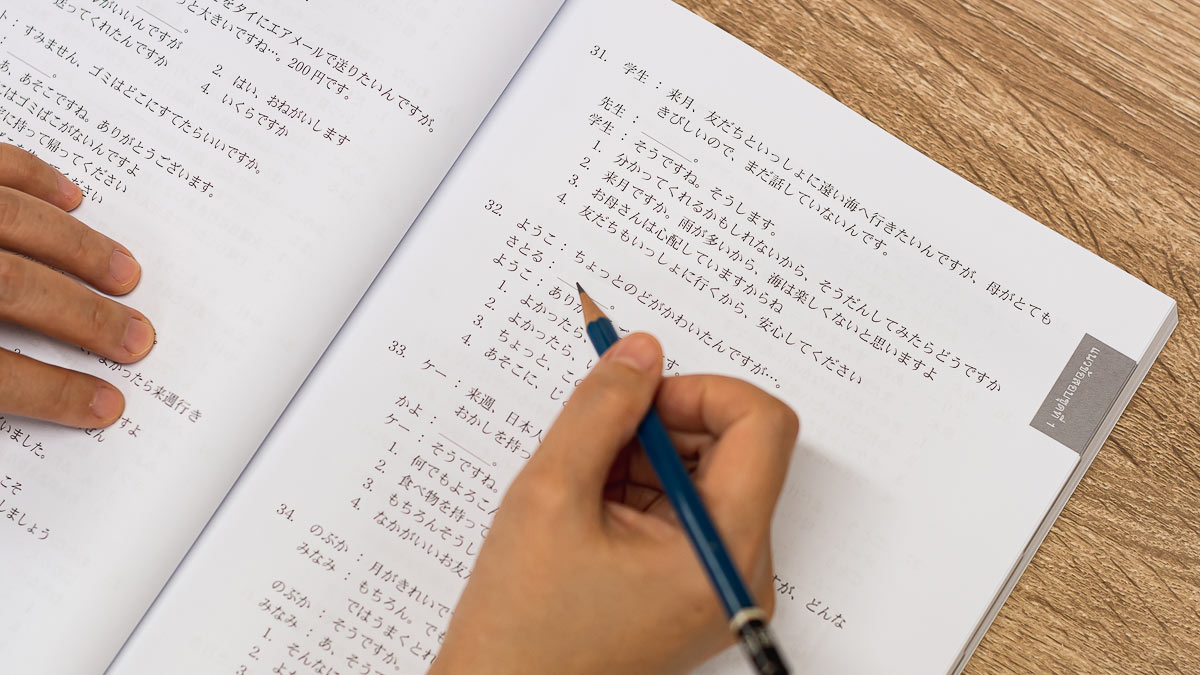 をタイにエアメールで送りたいんですが。
っと大きいですね…。200円です。
がいいんですが
送ってくれたんですか
2. はい、おねがいします
4. いくらですか
ト：すみません、ゴミはどこにすてたらいいですか。
：＿＿＿。
あ、あそこですね。ありがとうございます。
にはゴミばこがないんですよ
に持って帰ってください
ください
よかったら来週行き
ですよ
せん
いました。
こそ
しましょう
31. 学生：来月、友だちといっしょに遠い海へ行きたいんですが、母がとても
きびしいので、まだ話していないんです。
先生：＿＿＿。
学生：そうですね。そうします。
1. 分かってくれるかもしれないから、そうだんしてみたらどうですか
2. 来月ですか。雨が多いから、海は楽しくないと思いますよ
3. お母さんは心配していますからね
4. 友だちもいっしょに行くから、安心してください
32. ようこ：ちょっとのどがかわいたんですが…。
さとる：＿＿＿。
ようこ：ありが
1. よかったら、こ
2. よかったら、い
3. ちょっと、この
4. あそこに、じ
す。
33. ケー：来週、日本人
おかしを持っ
が、どんな
かよ：＿＿＿。
ケー：そうですね。
1. 何でもよろこん
2. 食べ物を持って
3. もちろんそうし
4. なかがいいお友
34. のぶか：月がきれいで
みなみ：もちろん。でも
ではうまくとれ
のぶか：そうですか。
みなみ：あ、そう
1. そんなに
2. よか
3.
แนวข้อสอบชุดที่ 1